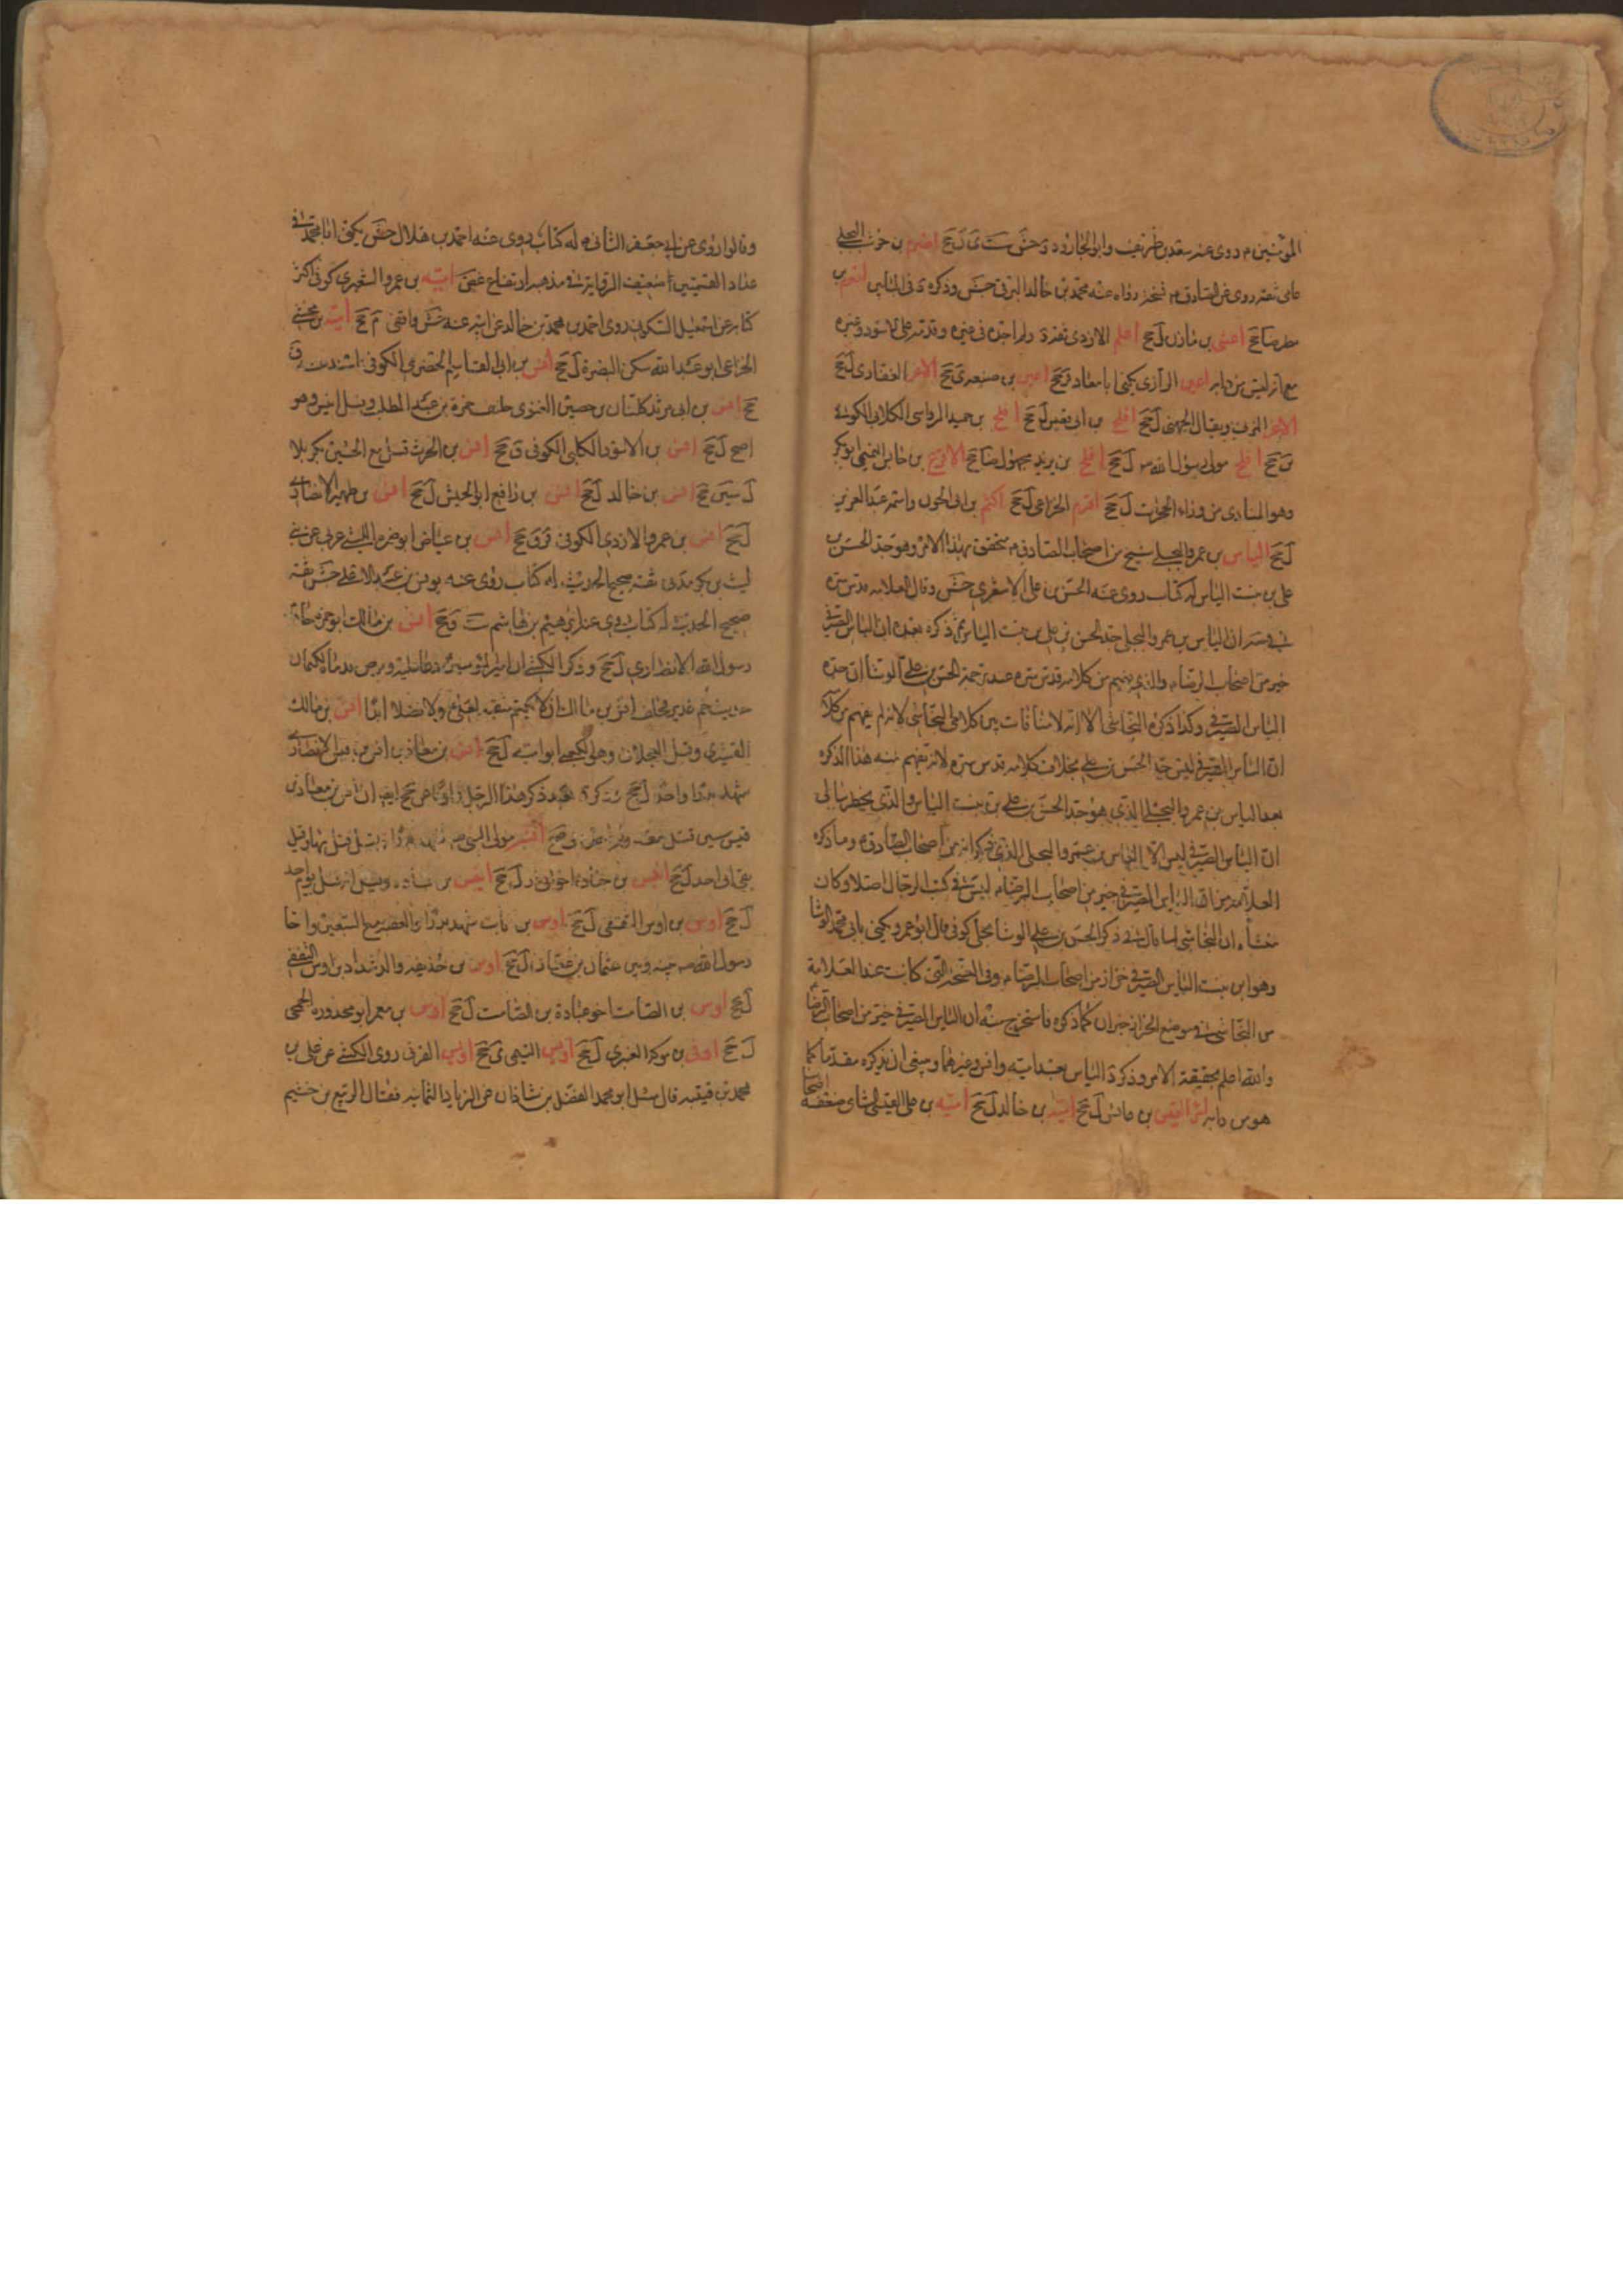 المؤمنين م روى عنه سعد بن طريف وابو الجارود د جش ست ى ل جح اصرم بن حوشب البجلى
عامى ثقة روى عن الصادق م نسخة رواه عنه محمد بن خالد البرقى جش وذكره د فى البابين
ضا جح اعشى بن مازن ل جح اعلم الازدى د ولم اجده فى غيره
اعين الرازى يكنى ابا معاذ ق جح اعين بن ى جح الاغر الغفارى ل جح
الاغر المزنى ويقال الجهنى ل جح افلح بن ابى قعيس ل جح افلح بن حميد الرواسى الكلابى الكوفى
ين جح افلح مولى رسول الله ص ل جح افلح بن يزيد مجهول ضا جح الاقرع بن حابس التميمى
وهو المنادى من وراء الحجرات ل جح اقرم الخزاعى ل جح اكثم بن ابى الجون واسمه عبد العزيز
ل جح الياس بن عمرو البجلى شيخ من اصحاب الصادق م متحقق بهذا الامر وهو جد الحسن بن
على بن بنت الياس له كتاب روى عنه الحسن بن على الاشعرى جش وقال العلامة قدس سره
ان الياس بن عمرو البجلى جد الحسن بن على بن بنت الياس ثم ذكر بعده ان الياس الصيرفى
خير من اصحاب الرضا م والذى يفهم من كلامه قدس سره عند ترجمة الحسن بن على الوشا ان جده
الياس الصيرفى وكذا ذكره النجاشى الا انه لا منافات بين كلامى النجاشى لانه لم يفهم من كلامه
ان الياس الصيرفى ليس جد الحسن بن على بخلاف كلامه قدس سره لانه يفهم منه هذا لذكره
بعد الياس بن عمرو البجلى الذى هو جد الحسن بن على بن بنت الياس والذى يخطر ببالى
ان الياس الصيرفى ليس الا الياس بن عمرو البجلى الذى ذكر انه من اصحاب الصادق م وما ذكره
العلامة من ان الياس الصيرفى خير من اصحاب الرضا م ليس فى كتب الرجال اصلا وكان
منشأه ان النجاشى لما قال فى ذكر الحسن بن على الوشا بجلى كوفى قال ابو عمرو يكنى بابى محمد الوشا
وهو ابن بنت الياس الصيرفى خزاز من اصحاب الرضا م وفى النسخة التى كانت عند العلامة
من النجاشى فى موضع الخزاز خيران كما ذكره فاستخرج منه ان الياس الصيرفى خير من اصحاب الرضا
والله اعلم بحقيقة الامر وذكر د الياس بعد امية وانس وغيرهما وينبغى ان يذكره مقدما كما
هو من دابه امرؤ القيس بن عابس ل جح امية بن خالد ل جح امية بن على القيسى الشامى ضعفه اصحابنا
وقالوا روى عن ابى جعفر الثانى م له كتاب روى عنه احمد بن هلال جش يكنى ابا محمد فى
عداد القميين ضعيف الرواية فى مذهبه ارتفاع غض امية بن عمرو الشعيرى كوفى اكثر
كتابه عن اسمعيل السكونى روى احمد بن محمد بن خالد عن ابيه عنه جش واقفى م جح امية بن مخشى
الخزاعى ابو عبد الله سكن البصرة ل جح انس بن ابى القاسم الحضرمى الكوفى اسند عنه ق
جح انس بن ابى مرثد كناز بن حصين الغنوى حليف حمزة بن عبد المطلب وقيل انيس وهو
اصح ل جح انس بن الاسود الكلبى الكوفى ق جح انس بن الحرث قتل مع الحسين بكربلا
ل سين جح انس بن خالد ل جح انس بن رافع ابو الحيش ل جح انس بن ظهير الانصارى
ل جح انس بن عمرو الازدى الكوفى قر ق جح انس بن عياض ابو ضمرة الليثى عربى من بنى
ليث بن بكر مدنى ثقة صحيح الحديث له كتاب روى عنه يونس بن عبد الاعلى جش ثقة
صحيح الحديث له كتاب روى عنه ابراهيم بن هاشم ست ق جح انس بن مالك ابو حمزة خادم
رسول الله الانصارى ل جح وذكر الكشى ان امير المؤمنين م دعا عليه وبرص بدعائه لكتمان
حديث خم غدير فحلف انس بن مالك ان لا يكتم منقبة لعلى ولا فضلا ابدا انس بن مالك
القشيرى وقيل العجلان وهو الكعبى ابو امية ل جح انس بن معاذ بن انس بن قيس الانصارى
شهد بدرا واحدا ل جح
انسة مولى النبى ص
بقى الى احد ل جح انيس بن جنادة اخو ابى ذر ل جح انيس بن قتادة وقيل انه قتل يوم احد
ل جح اوس بن اوس الثقفى ل جح اوس بن ثابت شهد بدرا والعقبة مع السبعين واخا
رسول الله ص بينه وبين عثمان بن عفان ل جح اوس بن حذيفة والد شداد بن اوس الثقفى
ل جح اوس بن الصامت اخو عبادة بن الصامت ل جح اوس بن معير ابو محذورة الجمحى
ل جح اوفى بن موله العنبرى ل جح اويس القرنى روى الكشى عن على بن
محمد بن قتيبة قال سئل ابو محمد الفضل بن شاذان عن الزهاد الثمانية فقال الربيع بن خثيم